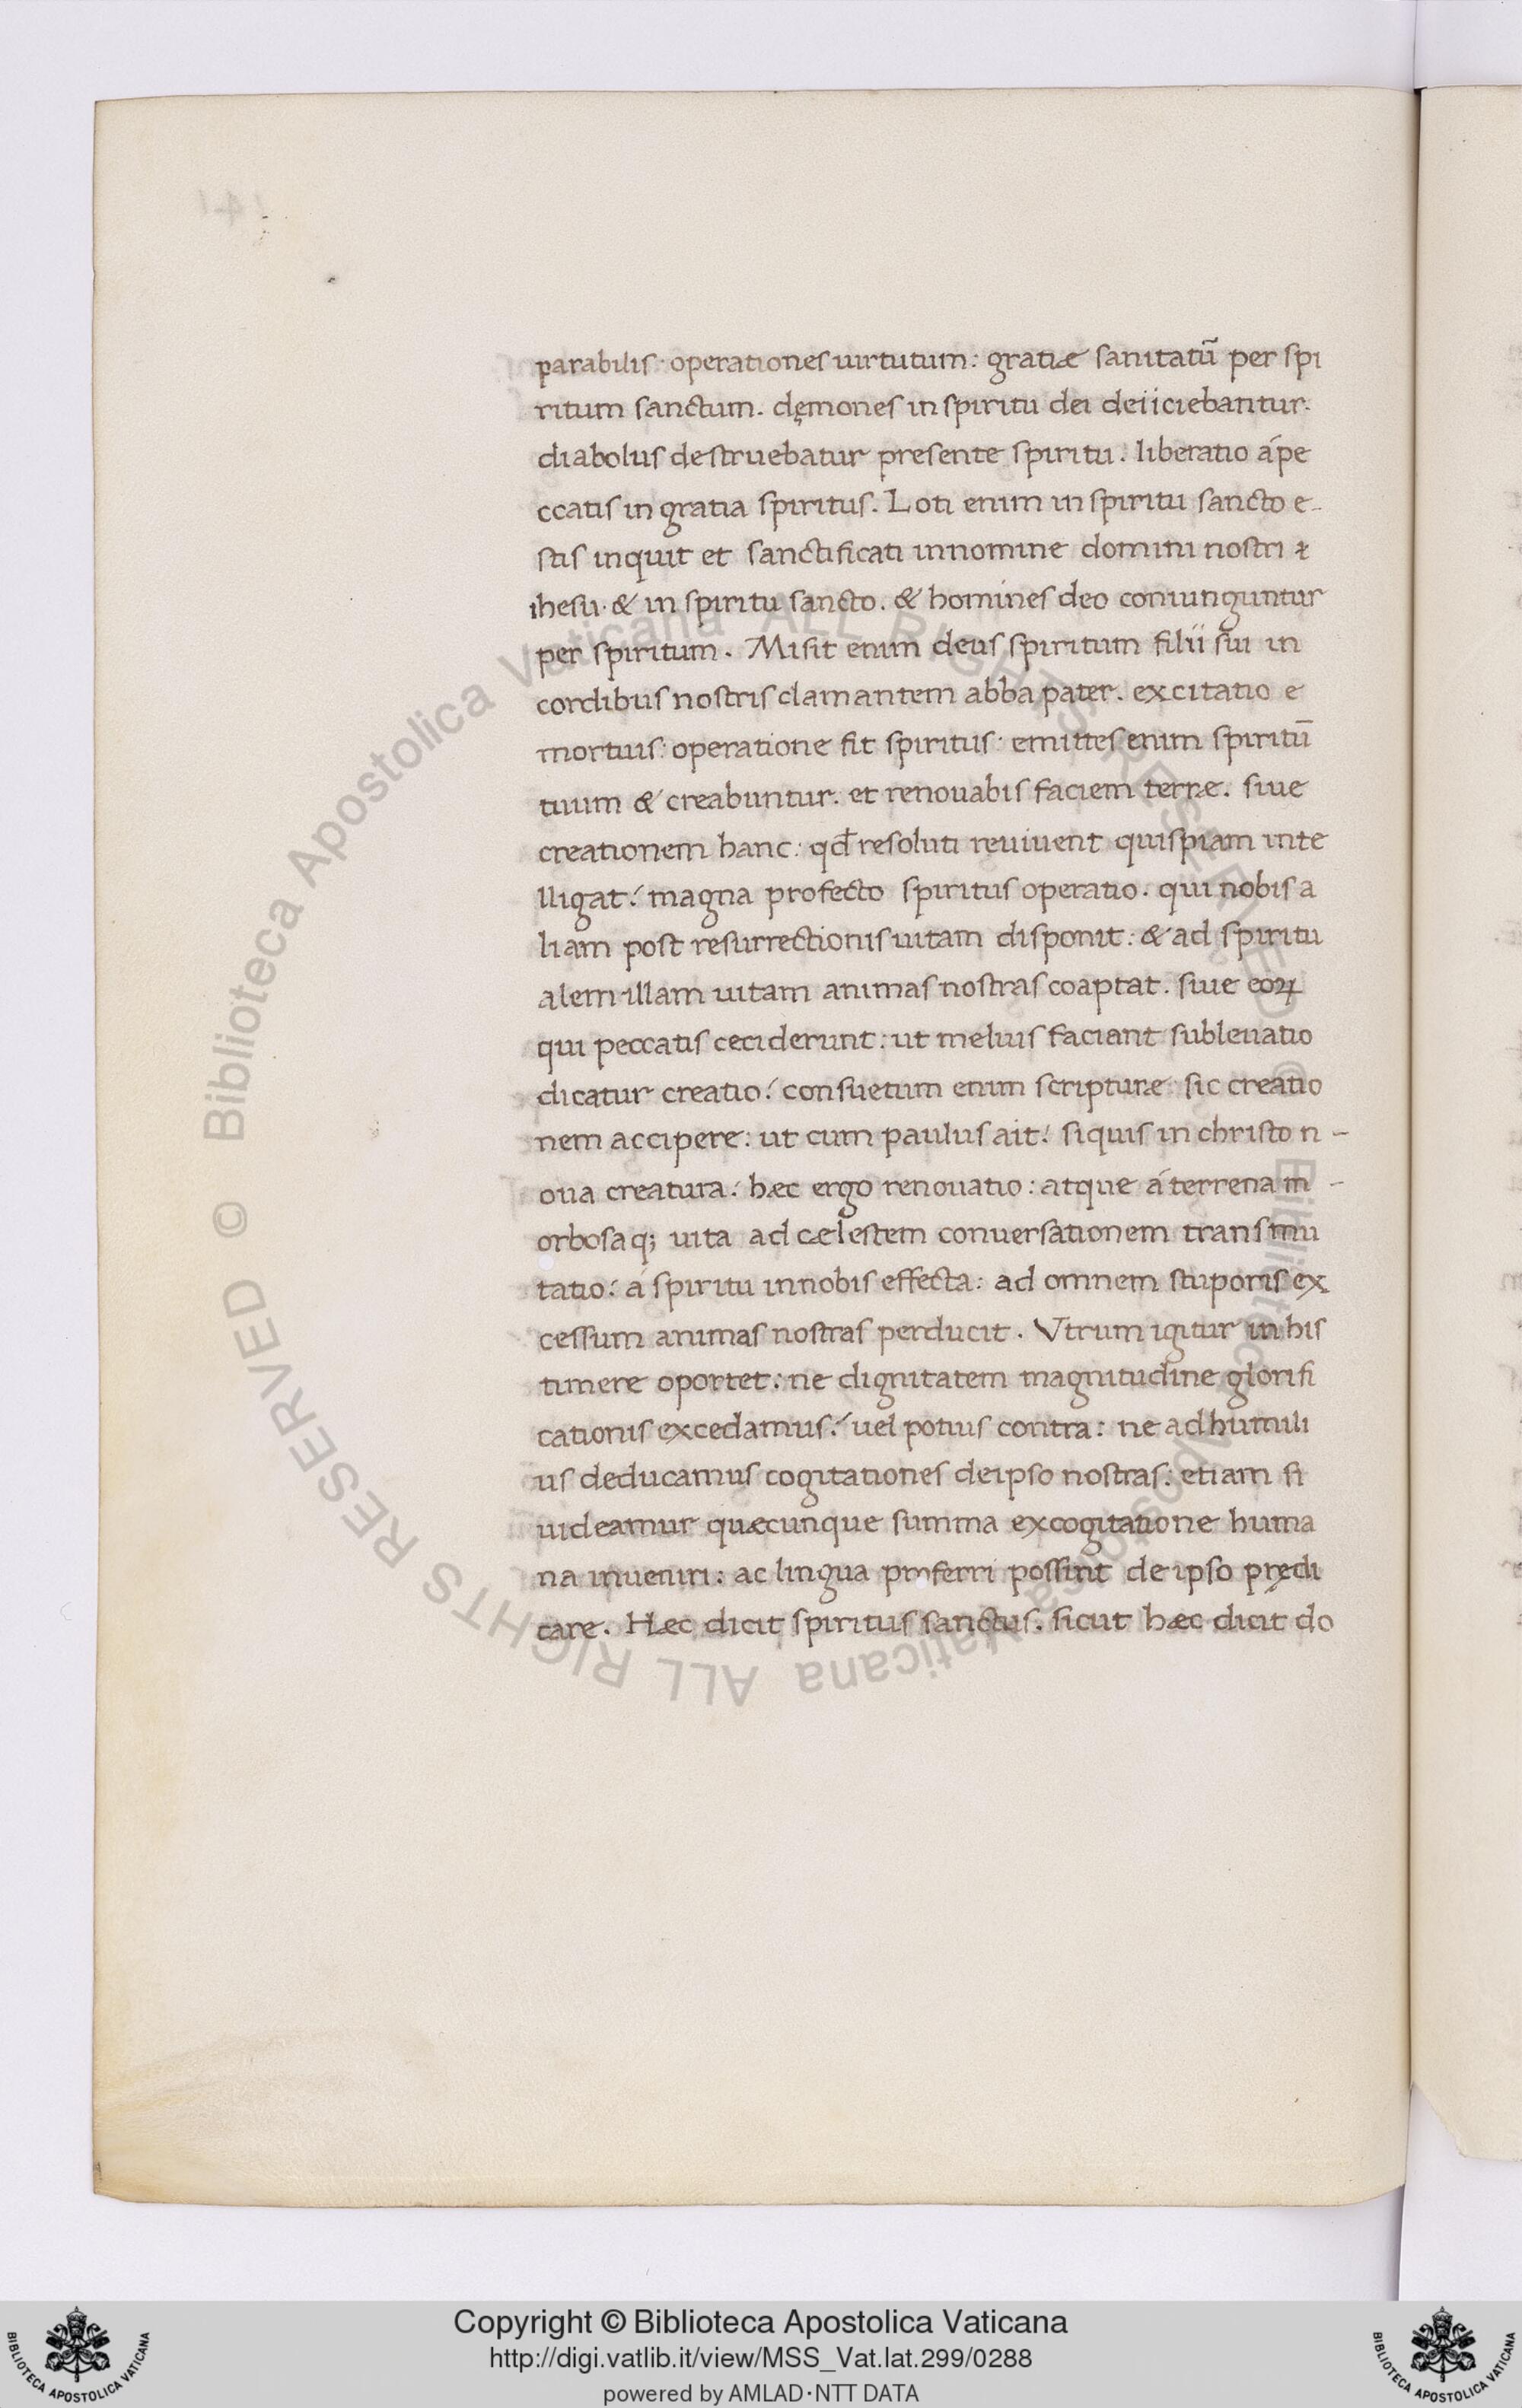 parabilis· operationes uirtutum: gratiæ sanitatū per spi
ritum sanctum. dęmones in spiritu dei deiiciebantur.
diabolus destruebatur presente spiritu. liberatio á pe
ccatis in gratia spiritus. Loti enim in spiritu sancto e-
stis inquit et sanctificati in nomine domini nostri
ihesu· & in spiritu sancto. & homines deo coniunguntur
per spiritum. Misit enim deus spiritum filii sui in
cordibus nostris clamantem abba pater. excitatio e
mortuis: operatione fit spiritus· emittes enim spiritū
tuum & creabuntur. et renouabis faciem terræ. siue
creationem hanc: qđ resoluti reuiuent quispiam inte
lligat: magna profecto spiritus operatio. qui nobis a
liam post resurrectionis uitam disponit: & ad spiritu
alem illam uitam animas nostras coaptat. siue eoꝝ
qui peccatis ceciderunt: ut melius faciant subleuatio
dicatur creatio: consuetum enim scripturæ sic creatio
nem accipere: ut cum paulus ait: si quis in christo n-
oua creatura: hæc ergo renouatio: atque á terrena m-
orbosaq; uita ad cælestem conuersationem transmu
tatio: á spiritu in nobis effecta: ad omnem stuporis ex
cessum animas nostras perducit. Vtrum igitur in his
timere oportet: ne dignitatem magnitudine glorifi
cationis excedamus: uel potius contra: ne ad humili
us deducamus cogitationes de ipso nostras: etiam si
uideamur quæcunque summa excogitatione huma
na inueniri: ac lingua proferri possint de ipso prędi
care. Hæc dicit spiritus sanctus. sicut hæc dicit do
Biblioteca Apostolica Vaticana ALL RIGHTS RESERVED © Biblioteca Apostolica Vaticana ALL RIGHTS RESERVED ©
Copyright © Biblioteca Apostolica Vaticana
http://digi.vatlib.it/view/MSS_Vat.lat.299/0288
powered by AMLAD·NTT DATA
BIBLIOTECA APOSTOLICA VATICANA
BIBLIOTECA APOSTOLICA VATICANA